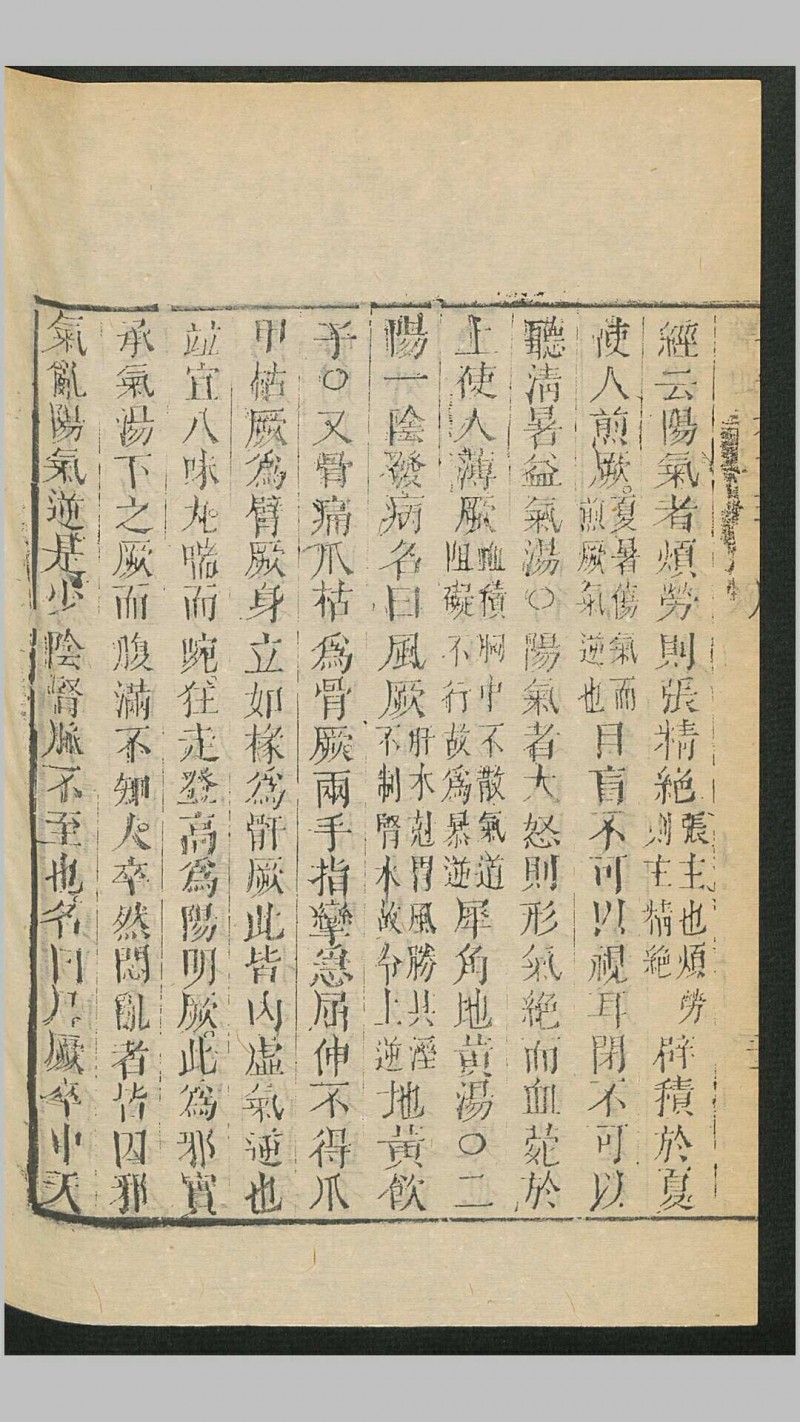 經云陽氣者煩勞則張精絕張主也煩勞則主精絕辟積於夏
使人煎厥夏暑傷氣而煎厥氣逆也目盲不可以視耳閉不可以
聽清暑益氣湯○陽氣者大怒則形氣絕而血菀於
上使人薄厥血積胸中不散氣道阻礙不行故為暴逆犀角地黃湯○二
陽一陰發病名曰風厥肝木尅胃風勝其溼不制腎水故令上逆地黃飲
子○又骨痛爪枯為骨厥兩手指攣急屈伸不得爪
甲枯厥為臂厥身立如椽為骭厥此皆內虛氣逆也
竝宜八味丸喘而㛂狂走登高為陽明厥此為邪實
承氣湯下之厥而腹滿不知人卒然悶亂者皆因邪
氣亂陽氣逆是少陰腎脈不至也名曰尸厥卒中天